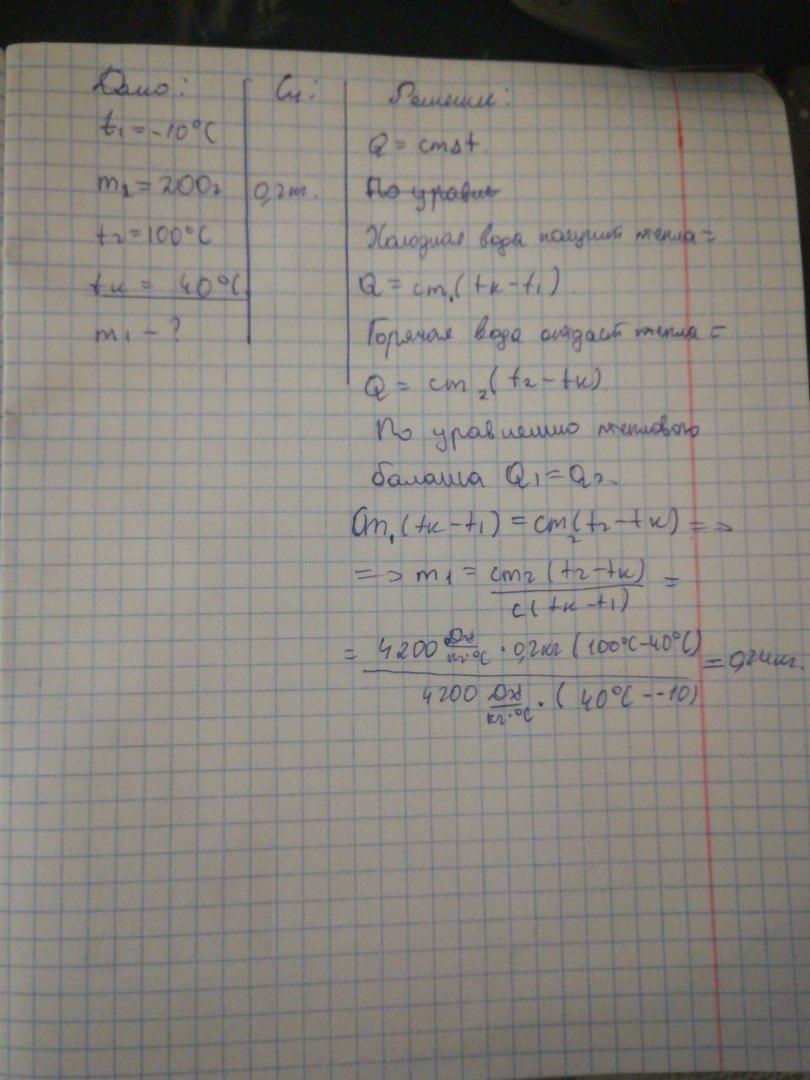 Дано:
t₁ = -10°C
m₂ = 200г
t₂ = 100°C
tк = 40°C
m₁ - ?
Си:
Решение:
Q = cmΔt.
По уравне
Холодная вода получит тепла =
Q = cm₁(tк - t₁).
Горячая вода отдаст тепла =
Q = cm₂(t₂ - tк).
По уравнению теплового
баланса Q₁ = Q₂.
Cm₁(tк - t₁) = cm₂(t₂ - tк) =>
=> m₁ = cm₂(t₂ - tк) / c(tк - t₁) =
= 4200 Дж/кг·°C · 0,2кг (100°C - 40°C) / 4200 Дж/кг·°C · (40°C - -10) = 0,24кг.